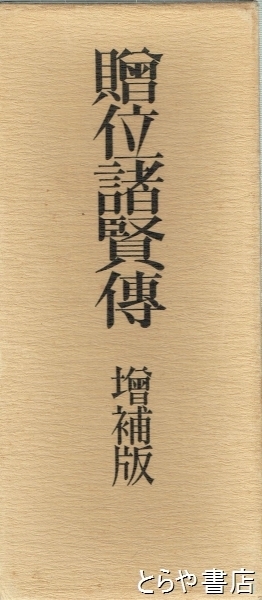 贈位諸賢傳
增補版
とらや書店